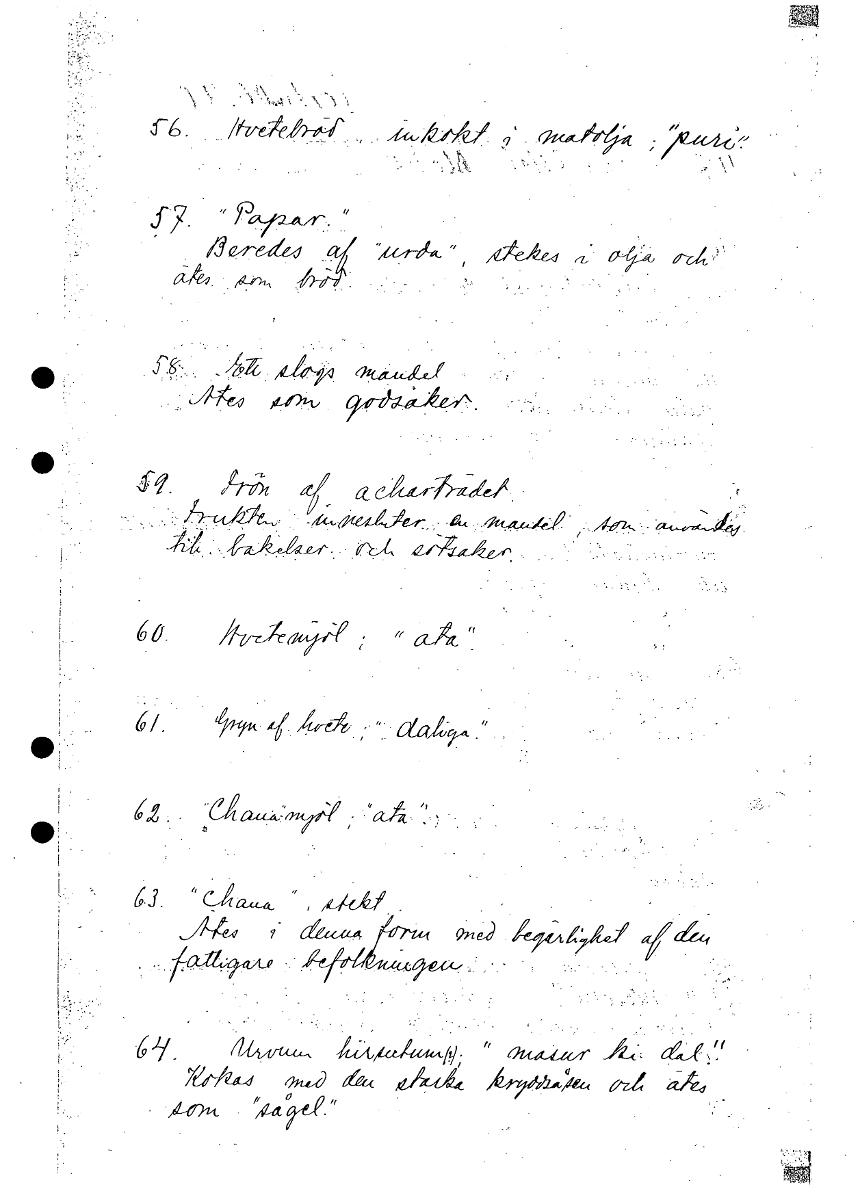 56. Hvetebröd inkokt i matolja; "puri".
57. "Papar."
Beredes af "urda", stekes i olja och
ätes som bröd.
58. Ett slags mandel
Ätes som godsaker.
59. Frön af acharträdet
Frukten innesluter en mandel, som användes
till bakelser och sötsaker.
60. Hvetemjöl; "ata".
61. Gryn af hvete; "daliga."
62. "Chana"mjöl; "ata".
63. "Chana", stekt
Ätes i denna form med begärlighet af den
fattigare befolkningen
64. Urvum hirsutum(?); "masur ki dal".
Kokas med den starka kryddsåsen och ätes
som "sågel."